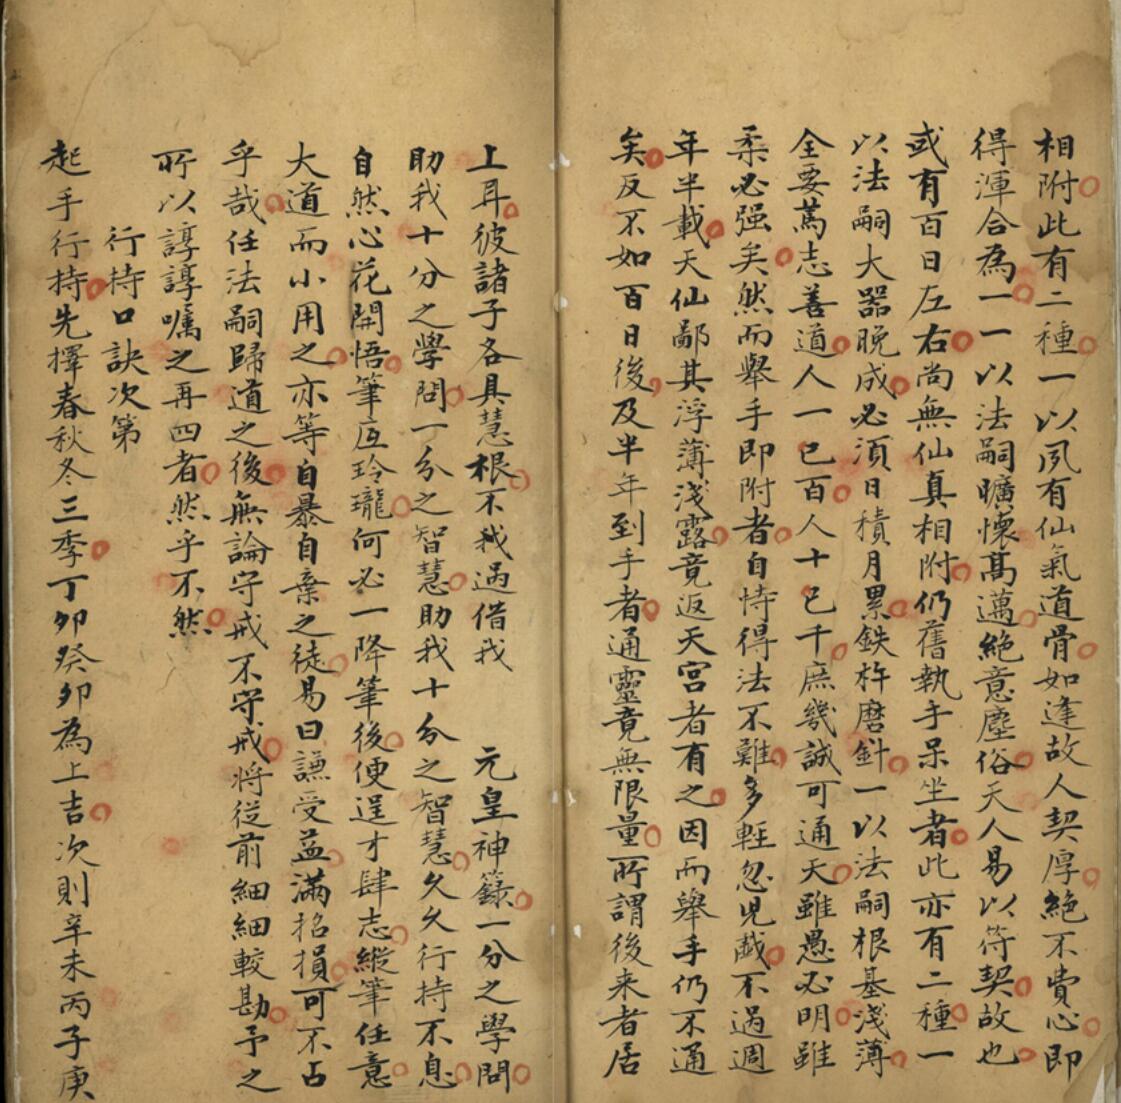 相附此有二種一以夙有仙氣道骨如逢故人契厚絶不費心即
得渾合為一一以法嗣曠懷髙邁絕意塵俗天人易以符契故也
或有百日左右尚無仙真相附仍舊執手呆坐者此亦有二種一
以法嗣大器晚成必湏日積月累鉄杵磨針一以法嗣根基淺薄
全要篤志善道人一已百人十已千庶幾誠可通天雖愚必明雖
柔必强矣然而舉手即附者自恃得法不難多輕忽児戯不過週
年半載天仙鄙其浮薄淺露竟返天宮者有之因而舉手仍不通
矣反不如百日後及半年到手者通靈竟無限量所謂後来者居
上耳彼諸子各具慧根不我過借我 元皇神籙一分之學問
助我十分之學問一分之智慧助我十分之智慧久久行持不息
自然心花開悟筆𠫇玲瓏何必一降筆後便逞才肆志縱筆任意
大道而小用之亦等自暴自棄之徒易曰謙受益滿招損可不占
乎哉任法嗣歸道之後無論守戒不守戒将從前細細較勘予之
所以諄諄囑之再四者然乎不然
行持口訣次第
起手行持先擇春秋冬三季丁夘癸夘為上吉次則辛未丙子庚